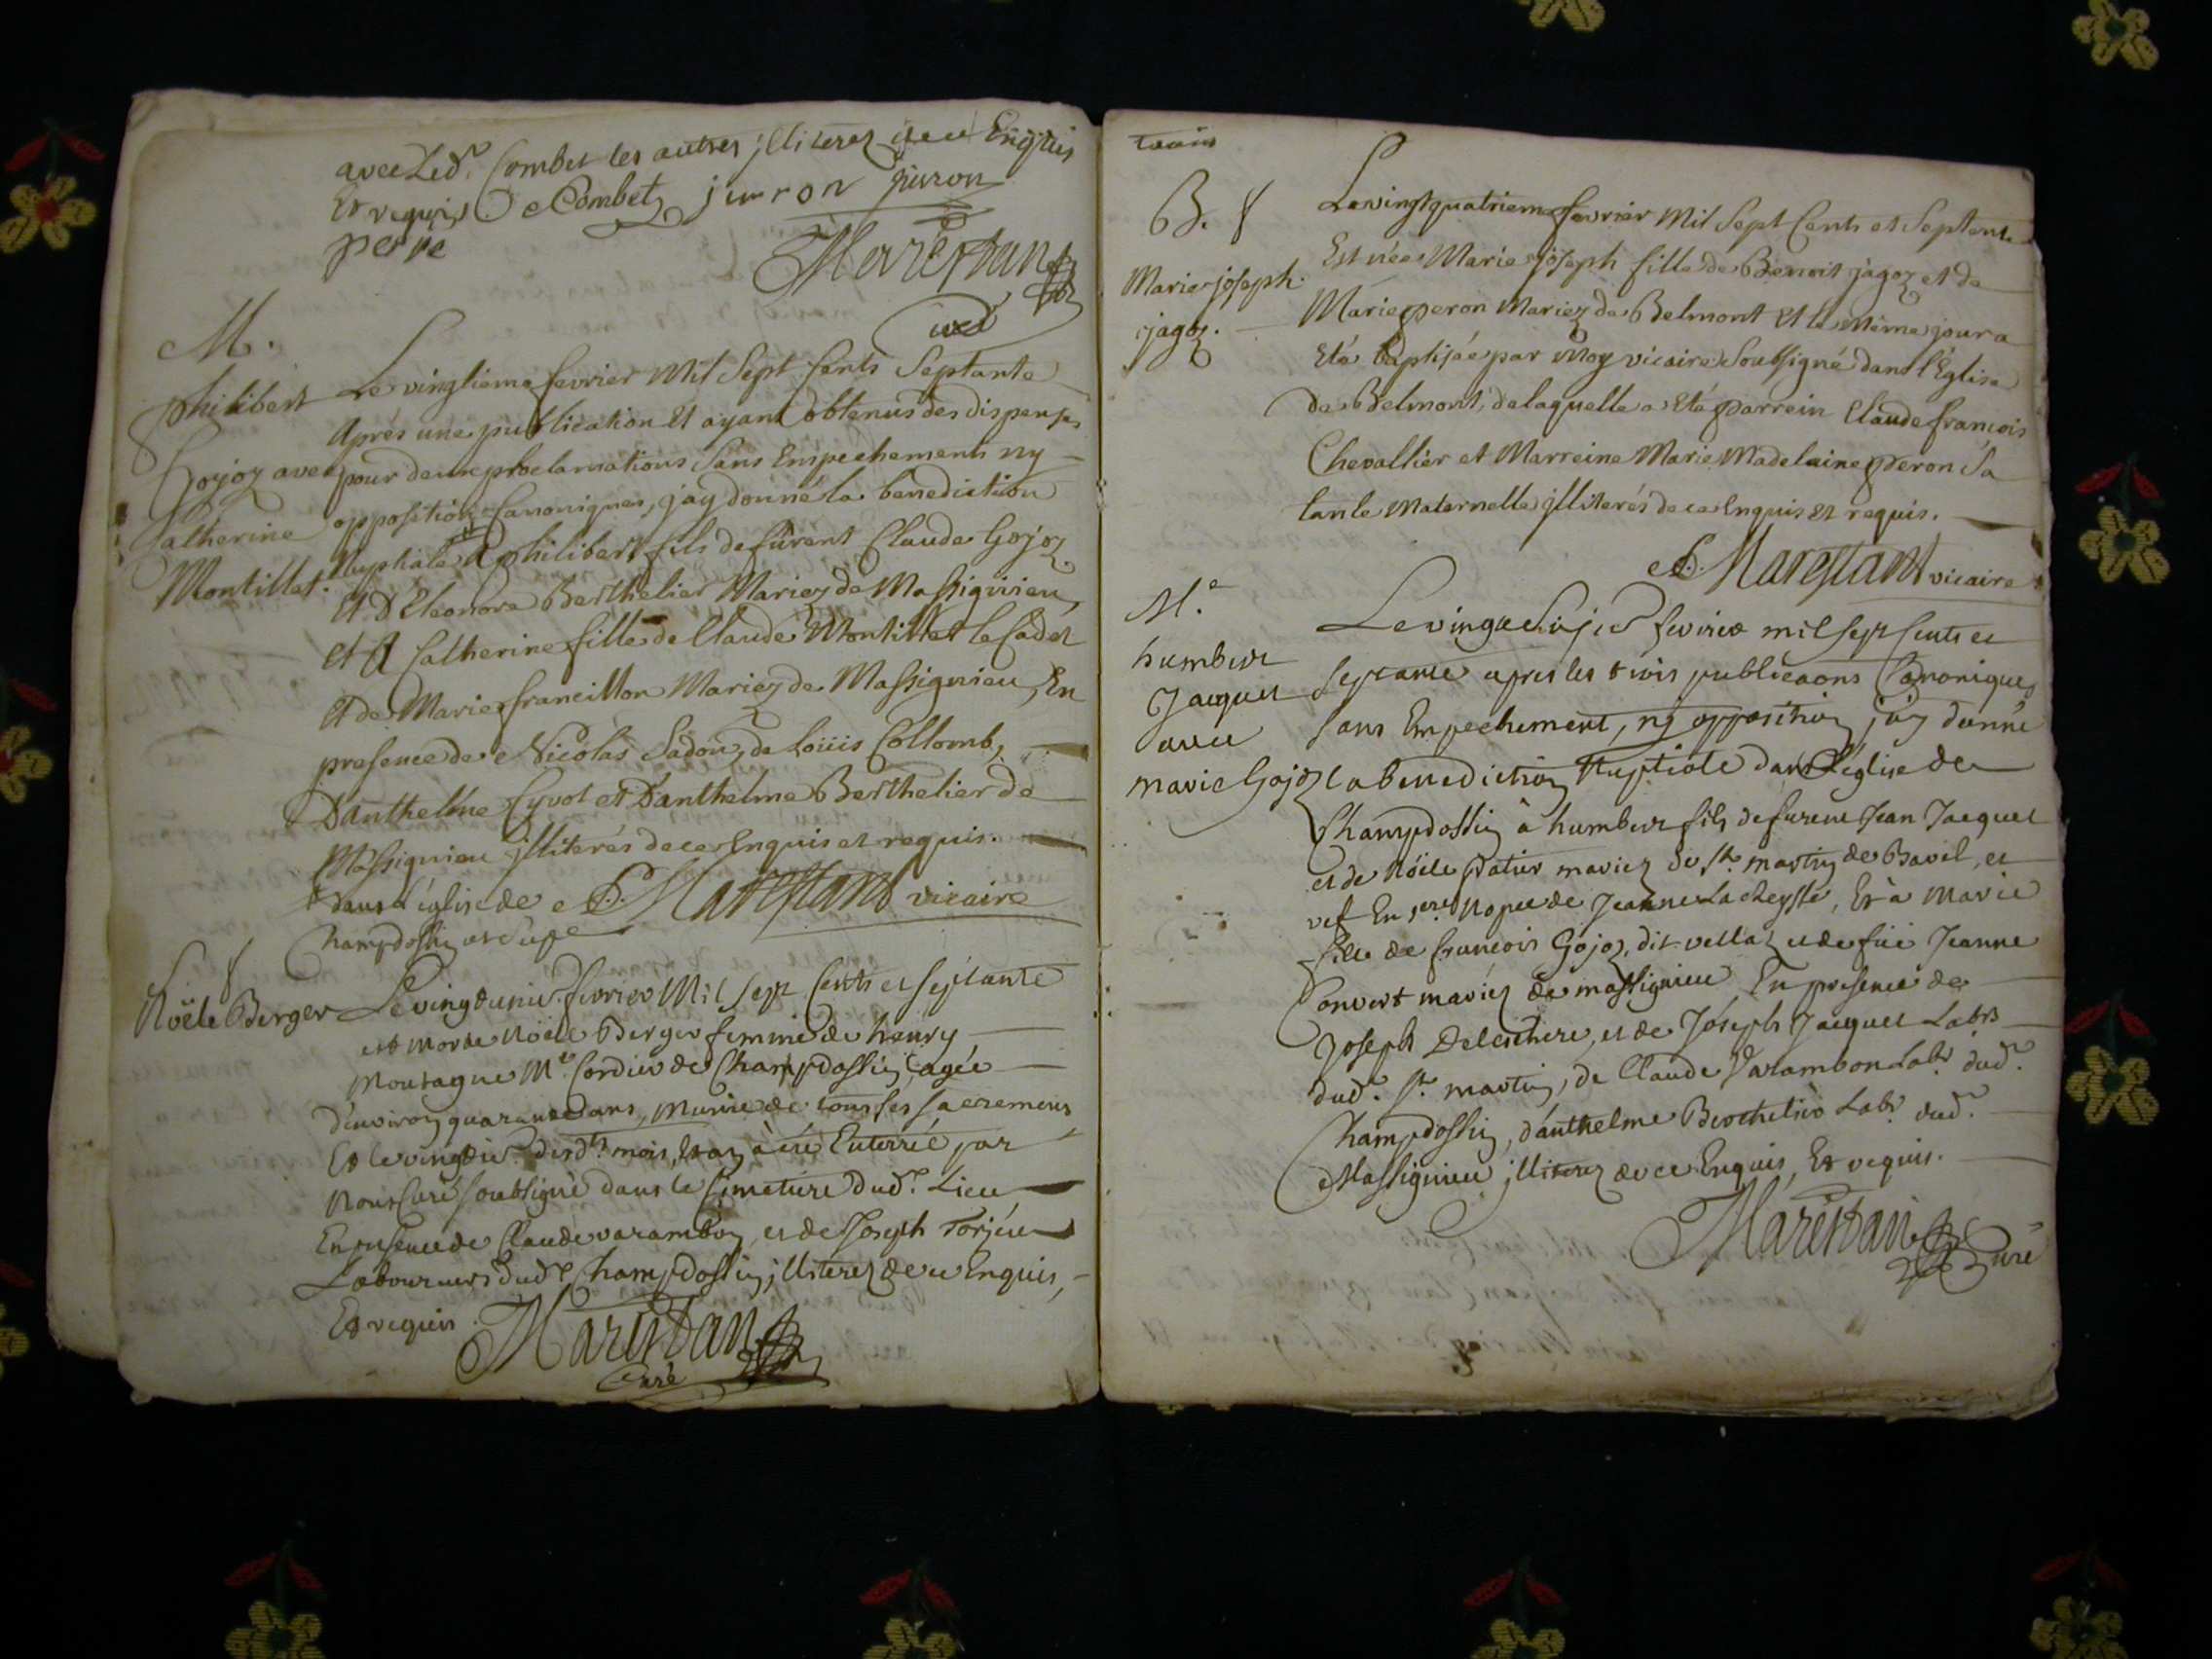 avec Led. Combet les autres jlliterez de ce Enquis
Et requis. Combet juron juron
perre
Marestan
curé
M.
philibert
Gojoz avec
Catherine
Montillet.
Le vingtieme fevrier Mil Sept Cents Septante
Après une publication et ayant obtenus des dispenses
pour deux proclamations Sans Empechements ny
opposition Canoniques, jay donné la benediction
Nuptiale à philibert fils de fûrent Claude Gojoz
et D'Eleonore Berthelier Mariez de Massignieu,
et à Catherine fille de Claude Montillet le Cadet
et de Marie francillon Mariez de Massignieu, En
presence de Nicolas Sadou, de Loüis Collomb,
D'anthelme Cyvot et D'anthelme Berthelier de
Massignieu jlliterés de ce Enquis et requis.
dans l'église de P. Marestant vicaire
Champdossin
S.
Noële Berger
Le vingt unie. fevrier Mil Sept Cents et septante
est morte Noële Berger femme de henry
Montagne Me. Cordier de Champdossin, agée
d'environ quarante ans, Munie de tous ses sacremens
Et le vingt du. mois, à été Enterrée par
Nous Curé soubsigné dans le Cimetiere dud. Lieu
En presence de Claude varambon, et de Joseph Torjeu
Laboureurs dud. Champdossin jlliterez de ce Enquis,
Et requis.
Marestan
Curé
B.
Marie joseph
jagoz.
Le vingt quatrieme fevrier Mil Sept Cents et Septente
Est née Marie joseph fille de Benoit jagoz et de
Marie peron Mariez de Belmont et le même jour a
Eté baptisée par Moy vicaire Soubsigné dans l'Église
de Belmont, de laquelle a Eté parrein Claude françois
Chevallier et Marreine Marie Madelaine peron Sa
tante Maternelle jlliterés de ce Enquis et requis.
P. Marestant vicaire
M.
humbert
Jacquet
avec
marie Gojoz
Le vingt fevrier mil sept Cents et
Septante apres les trois publicaons Canoniques
sans Empechement, ny opposition j'ay donné
la benediction Nuptiale dans l'église de
Champdossin à humbert fils de furent Jean Jacquet
et de Nöele patier mariez de St. martin de Bavel, et
vef En 1eres. Nopces de Jeanne , Et à Marie
fille de francois Gojoz, dit vellaz et de füe Jeanne
Convert mariez de massignieu En presence de
Joseph Delechere, et de Joseph Jacquet Labrs
dud. St. martin, de Claude Varambon Labr. dud.
Champdossin, d'anthelme Berthelier Labr. dud.
Massignieu jlliterez de ce Enquis, Et requis.
Marestan
Curé